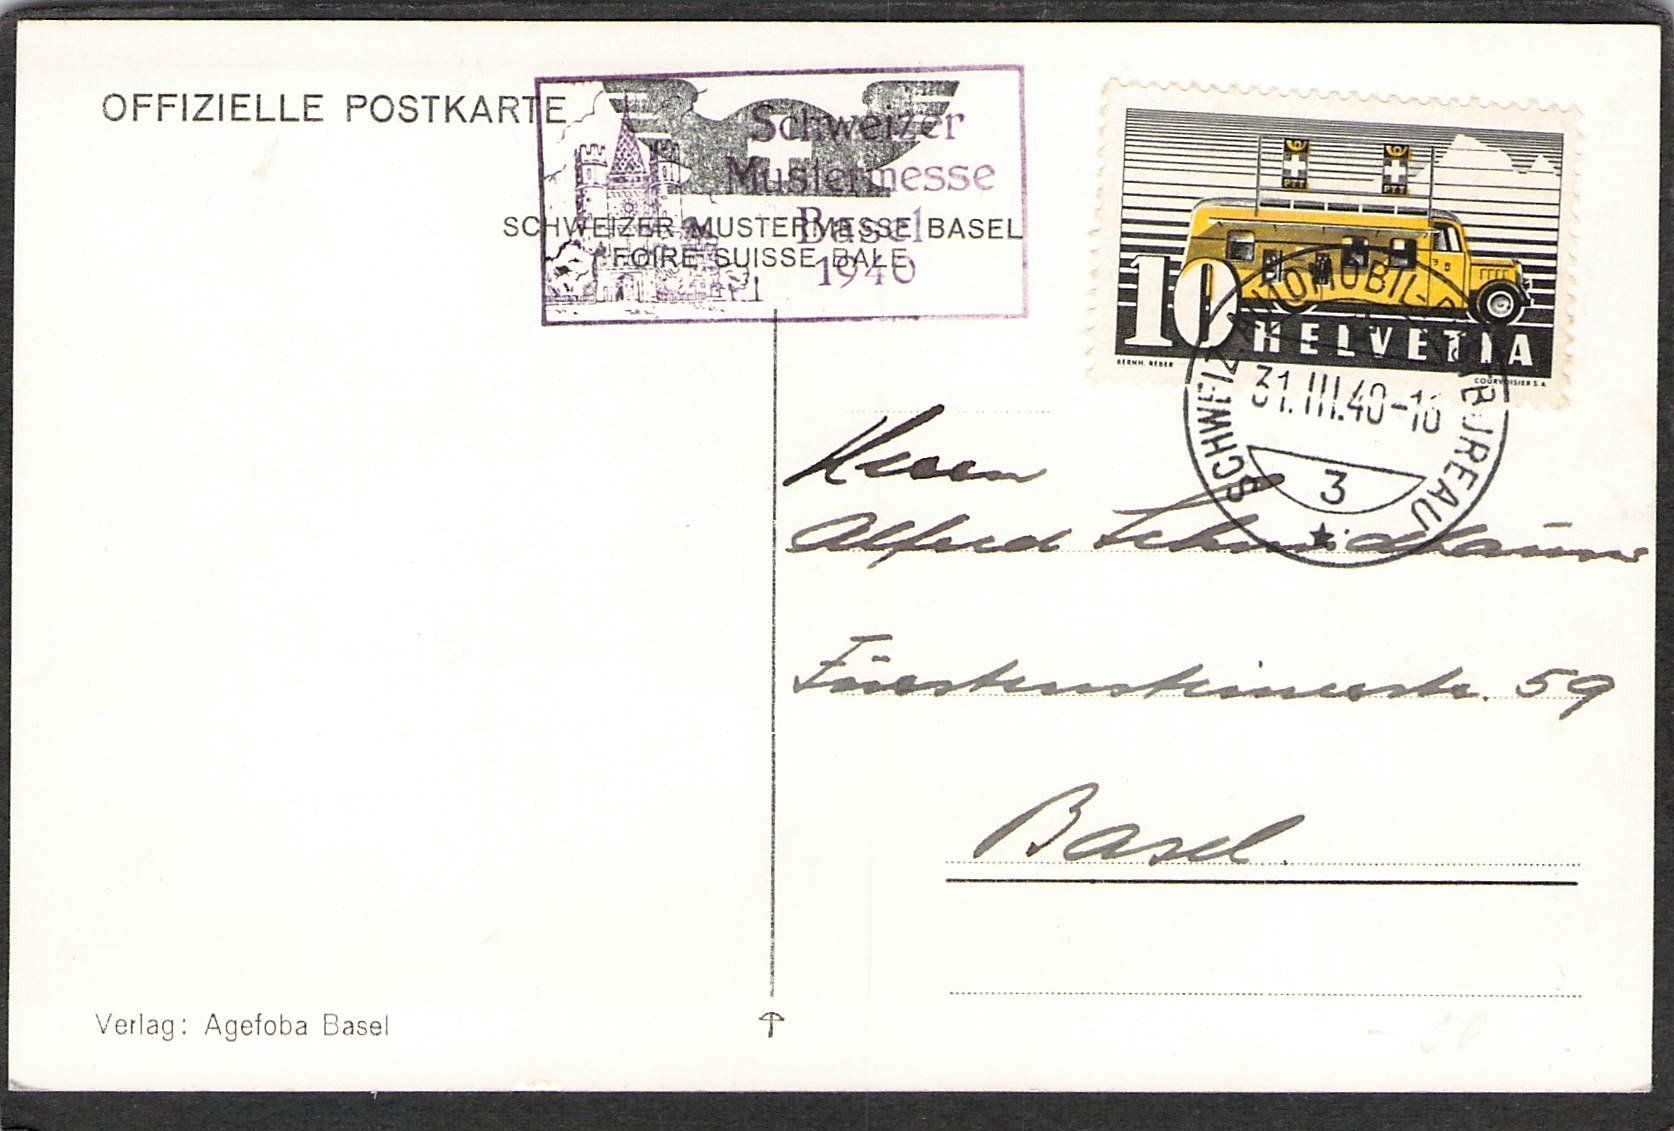 OFFIZIELLE POSTKARTE
Schweizer
Mustermesse
Basel
1940
SCHWEIZER MUSTERMESSE BASEL
FOIRE SUISSE BALE
PTT
PTT
10 HELVETIA
BERNH. REBER
COURVOISIER S.A.
SCHWEIZ. AUTOMOBIL-POSTBUREAU
31.III.40-16
3
Herrn
Alfred
Fürstensteinerstr. 59
Basel.
Verlag: Agefoba Basel